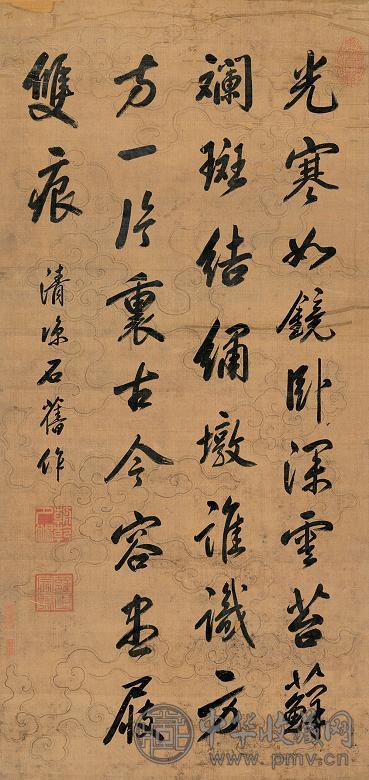 光寒如鏡卧深雲苔蘚
斕斑結繡墩誰識方
方一片裏古今容盡
雙痕
清凉石舊作
中华收藏网
www.pmv.cn